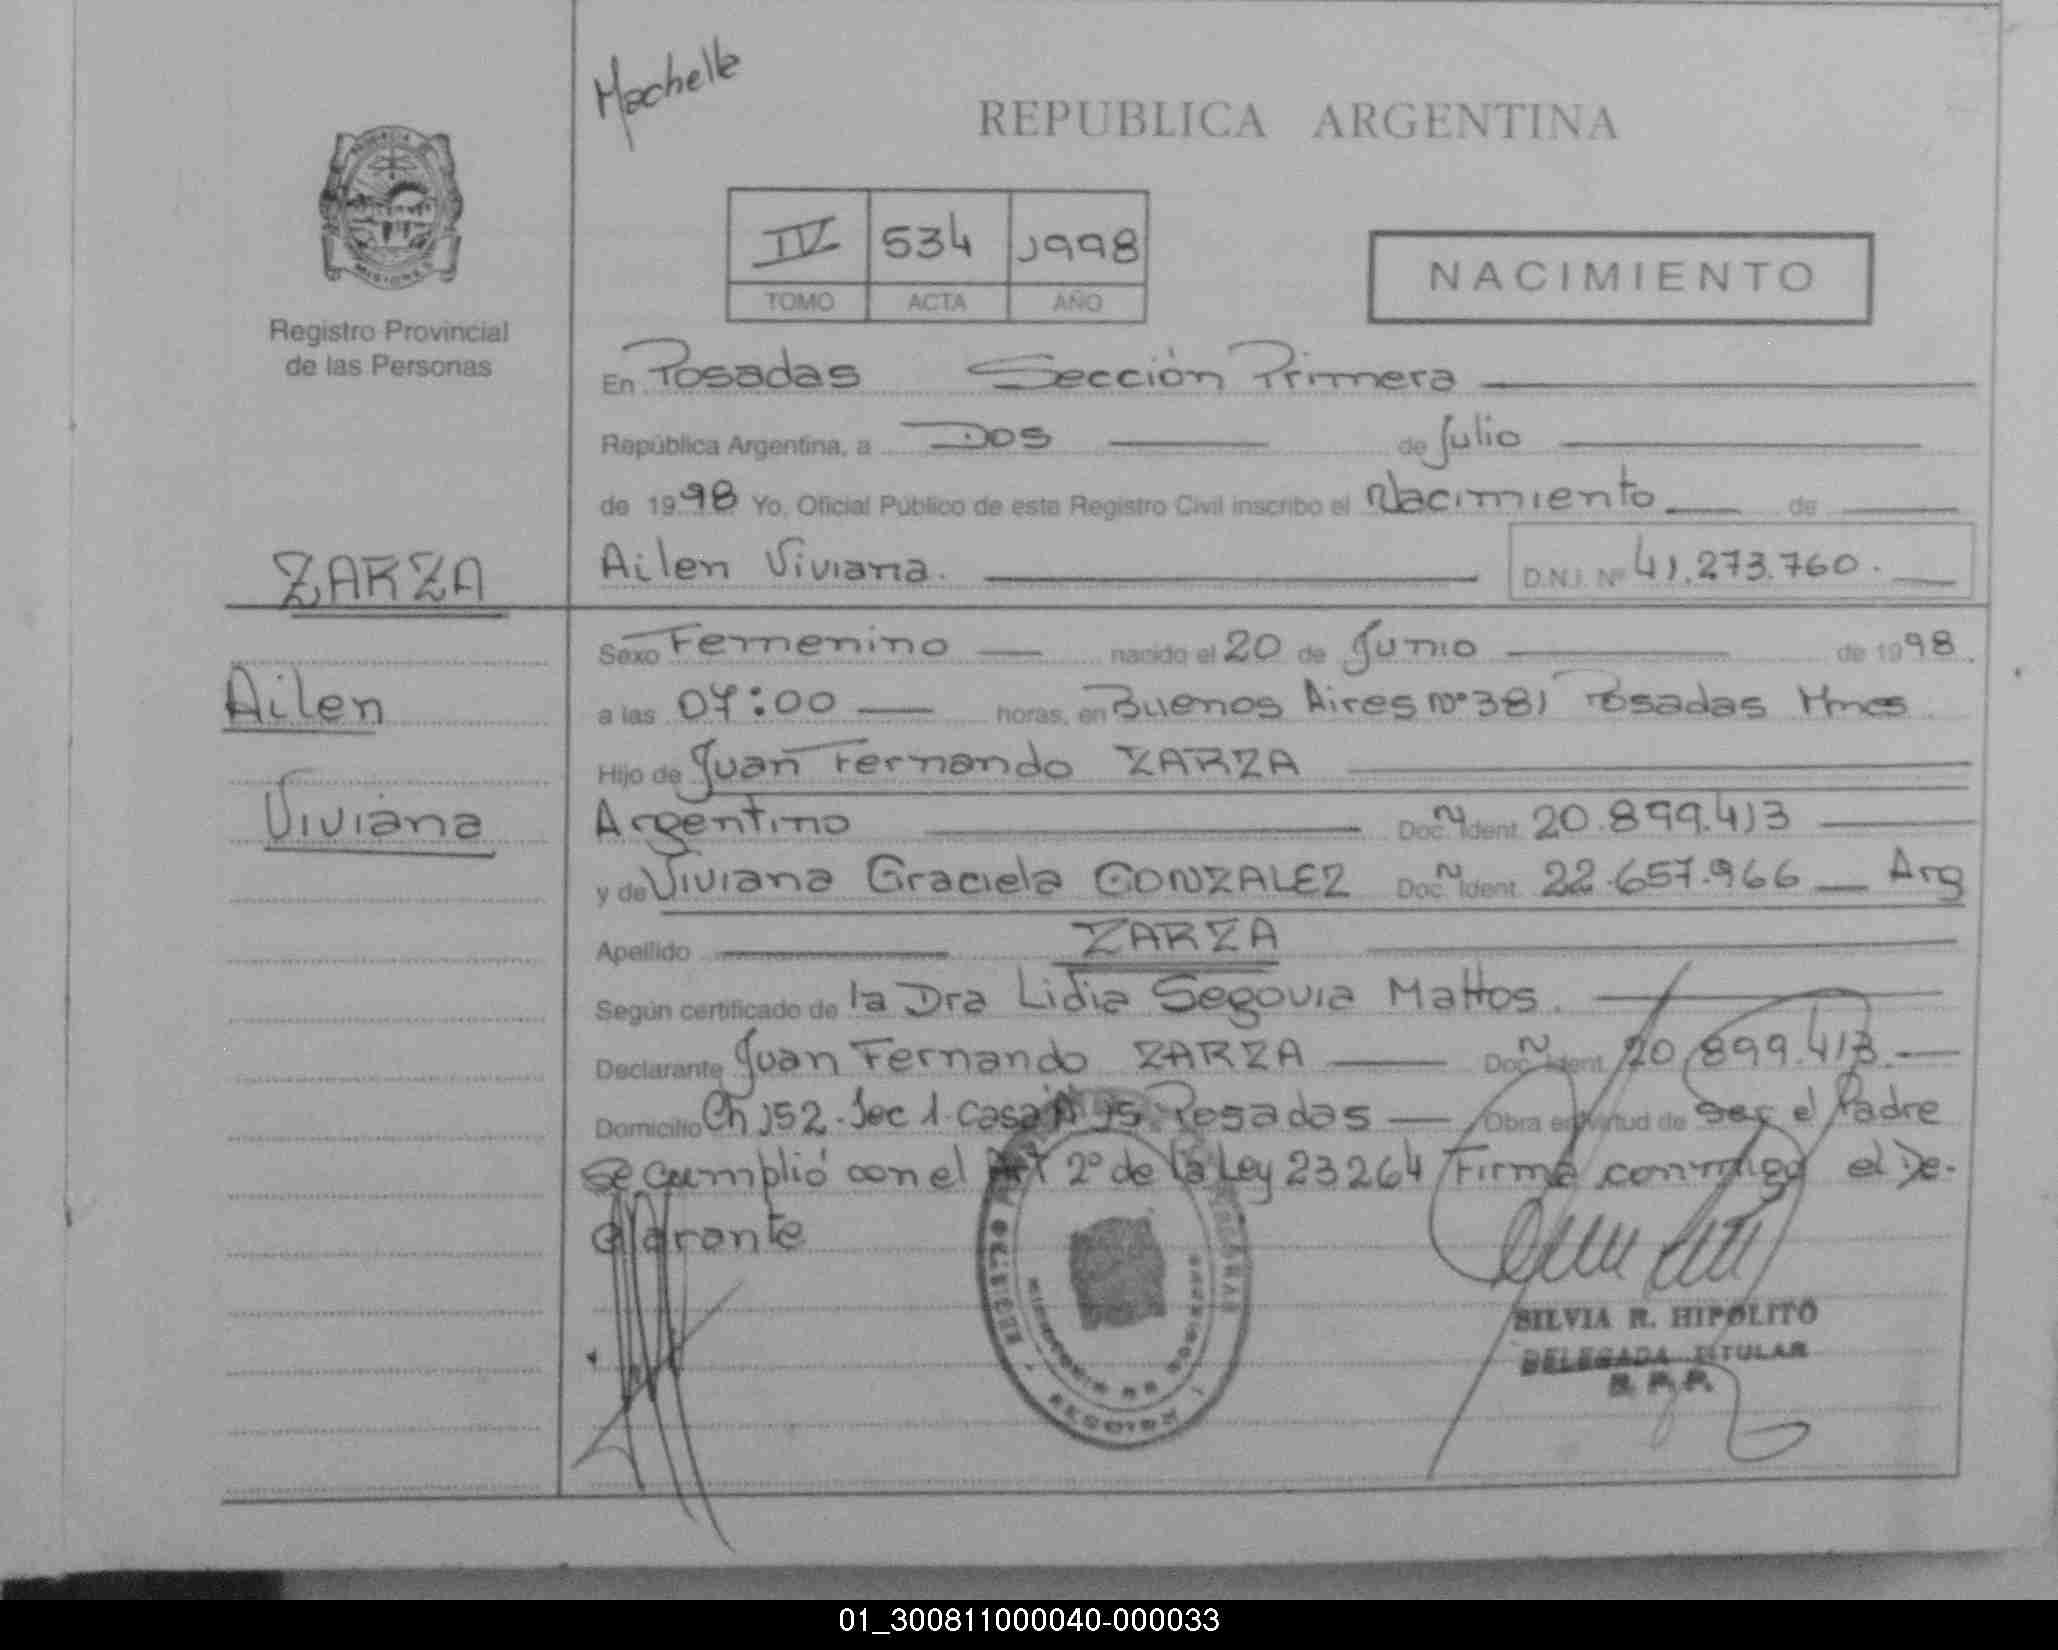 Machelle
REPUBLICA ARGENTINA
PROVINCIA DE
MISIONES
Registro Provincial
de las Personas
IV 534 1998
TOMO ACTA AÑO
NACIMIENTO
En Posadas Sección Primera
República Argentina, a Dos de Julio
de 1998 Yo, Oficial Público de este Registro Civil inscribo el Nacimiento de
ZARZA
Ailen Viviana. D.N.I. Nº 41.273.760.
Sexo Femenino nacido el 20 de Junio de 1998.
Ailen
a las 07:00 horas, en Buenos Aires nº 381 Posadas Mnes
Hijo de Juan Fernando ZARZA
Viviana
Argentino Doc. N Ident. 20.899.413
y de Viviana Graciela GONZALEZ Doc. N Ident. 22.657.966 Arg
Apellido ZARZA
Según certificado de la Dra Lidia Segovia Mattos.
Declarante Juan Fernando ZARZA Doc. N Ident. 20.899.413.
Domicilio Ch 152. Sec 1. Casa Nº 15. Posadas Obra en virtud de ser el Padre
Se cumplió con el Art 2º de la Ley 23264 Firma conmigo el De-
clarante
SILVIA R. HIPOLITO
DELEGADA TITULAR
R. P. P.
01_300811000040-000033